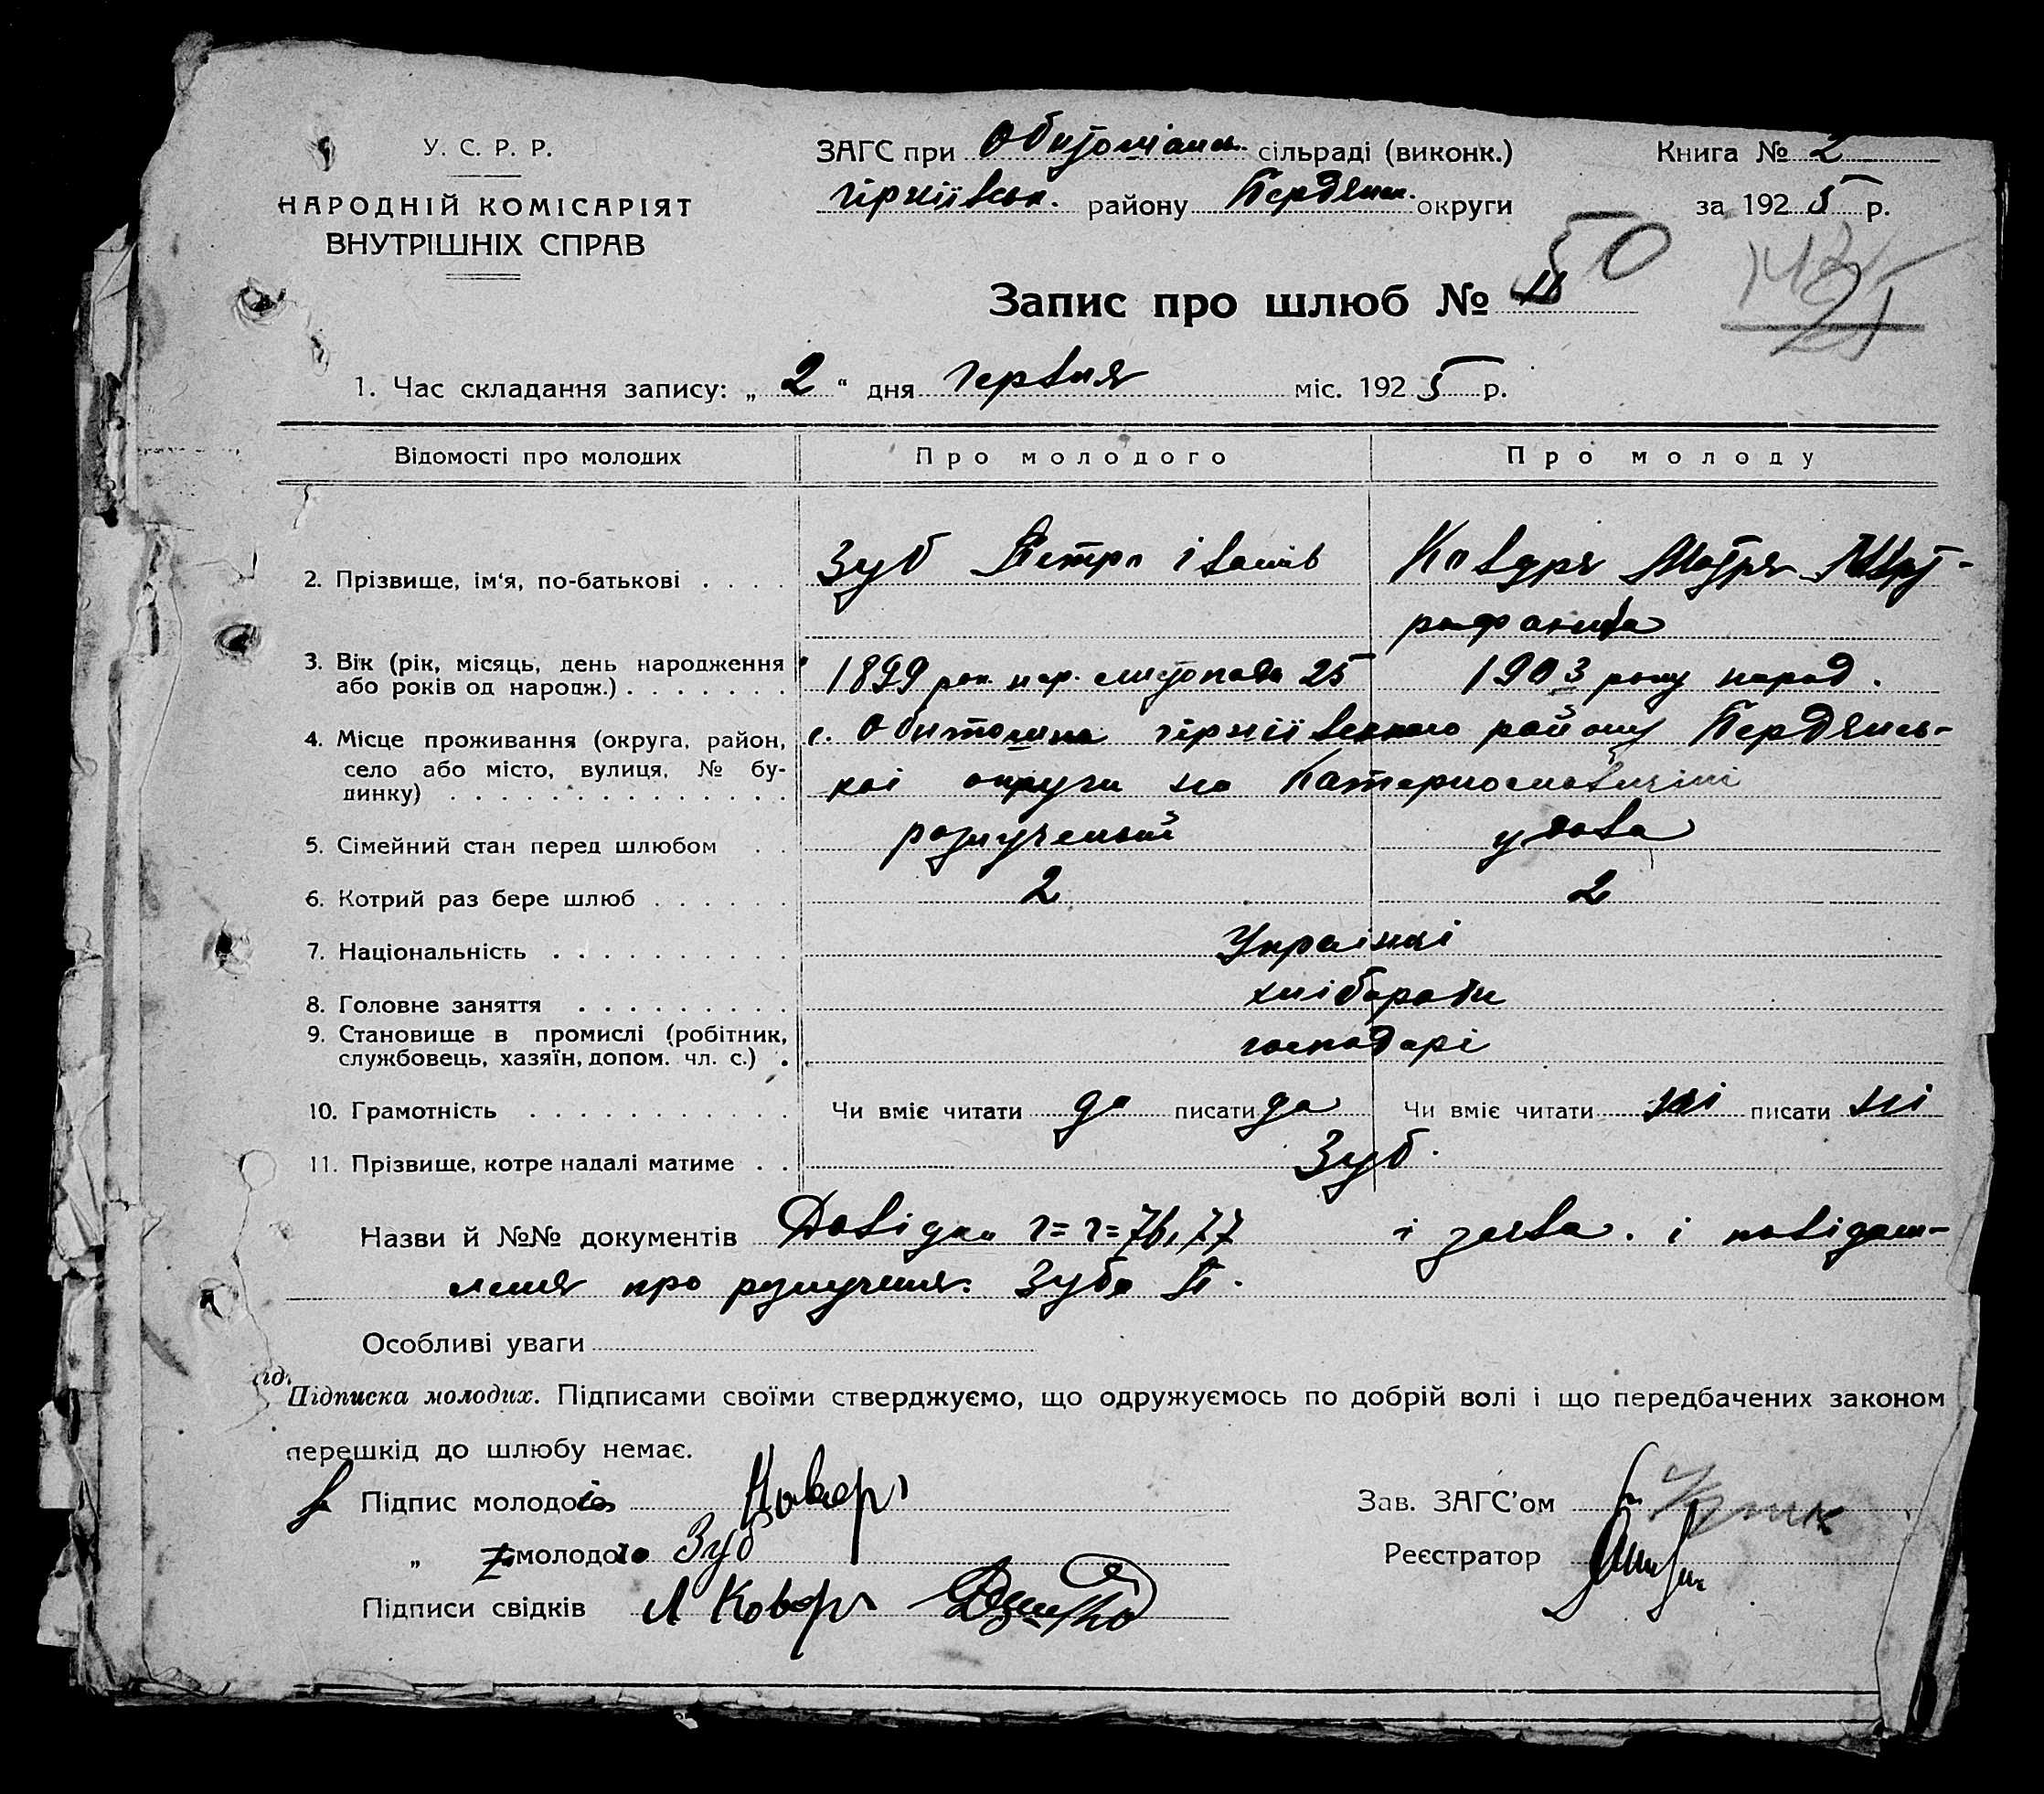 У. С. Р. Р.
НАРОДНІЙ КОМІСАРІЯТ
ВНУТРІШНІХ СПРАВ
ЗАГС при Обитошанськ. сільраді (виконк.)
Книга № 2
району Бердянськ. округи
за 1925 р.
50
Запис про шлюб №
1. Час складання запису: „ 2 “ дня червня міс. 1925 р.
Відомості про молодих
Про молодого
Про молоду
2. Прізвище, ім'я, по-батькові . . . .
Зуб Петро Іванів
Ковдря Мотря Мит-
рофанова
3. Вік (рік, місяць, день народження
або років од народж.) . . . . . . .
1899 рок. нар. листопада 25
1903 року народ.
4. Місце проживання (округа, район,
село або місто, вулиця, № бу-
динку) . . . . . . . . . . . . . .
району Бердянсь-
кої округи на Катеринославщині
5. Сімейний стан перед шлюбом . .
розлучений
удова
6. Котрий раз бере шлюб . . . . . .
2
2
7. Національність . . . . . . . . . .
Українці
8. Головне заняття . . . . . . . . .
хлібороби
9. Становище в промислі (робітник,
службовець, хазяїн, допом. чл. с.) .
господарі
10. Грамотність . . . . . . . . . . .
Чи вміє читати да писати да
Чи вміє читати ні писати ні
11. Прізвище, котре надалі матиме . .
Зуб.
Назви й №№ документів Довідки ч=ч=76, 77 і заява. і повідом-
лення про розлучення. Зуба П.
Особливі уваги
Підписка молодих. Підписами своїми стверджуємо, що одружуємось по добрій волі і що передбачених законом
перешкід до шлюбу немає.
Підпис молодої
Зав. ЗАГС'ом
„ молодого Зуб
Реєстратор
Підписи свідків